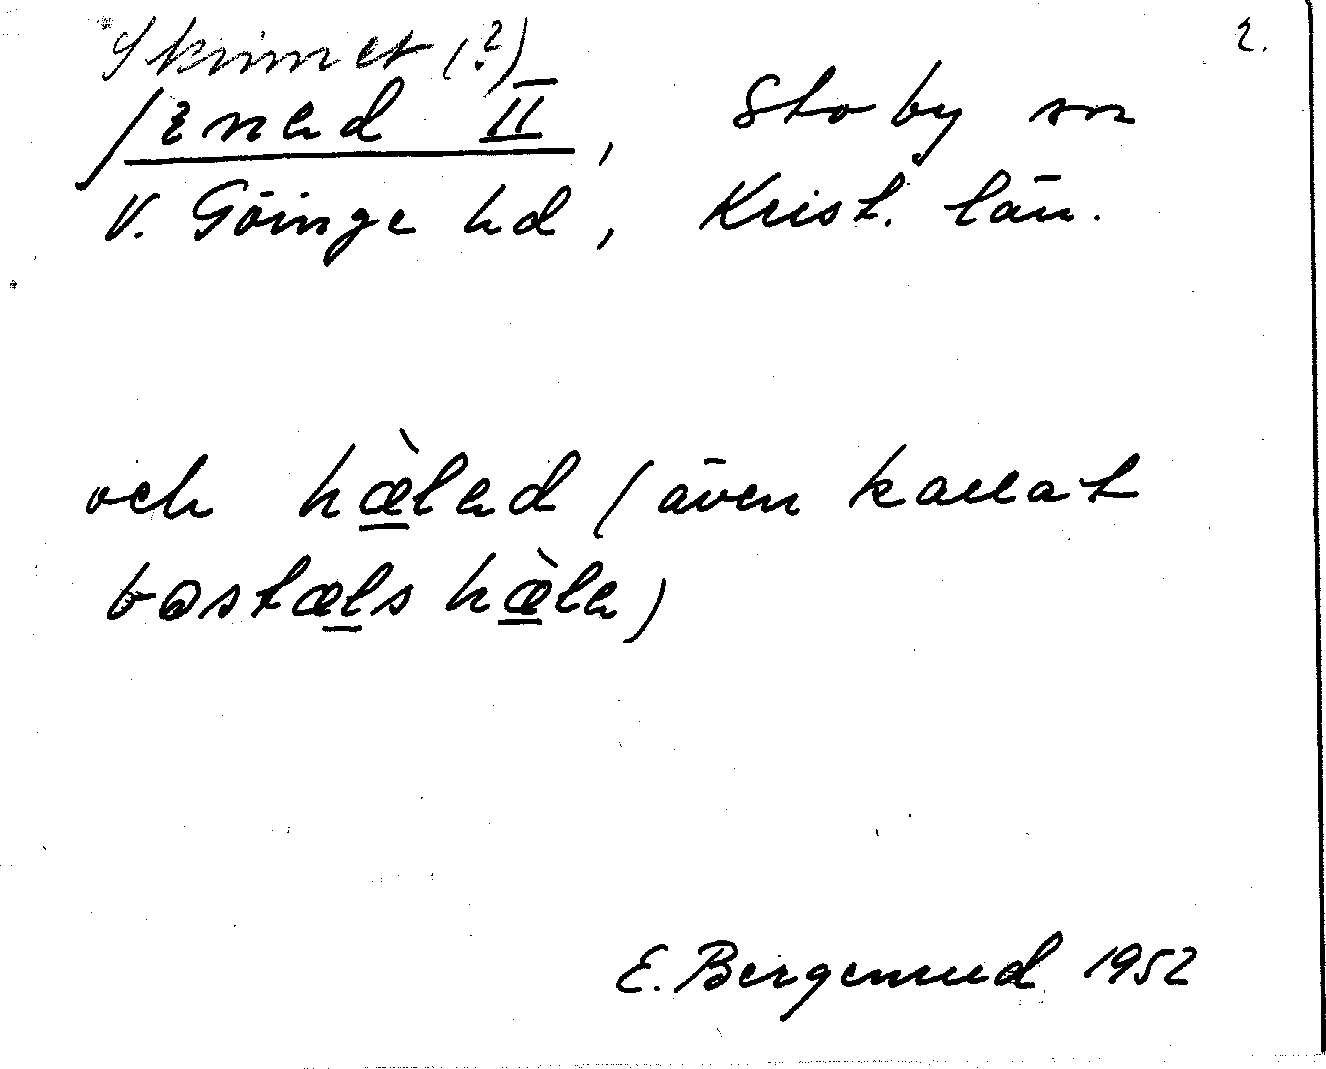 2.
Skinnet (?)
ʃɛnəd II, Stoby sn
V. Göinge hd, Krist. län.
och hæ̀ləd (även kallat
bostæls hæ̀lə)
E. Bergenrud 1952